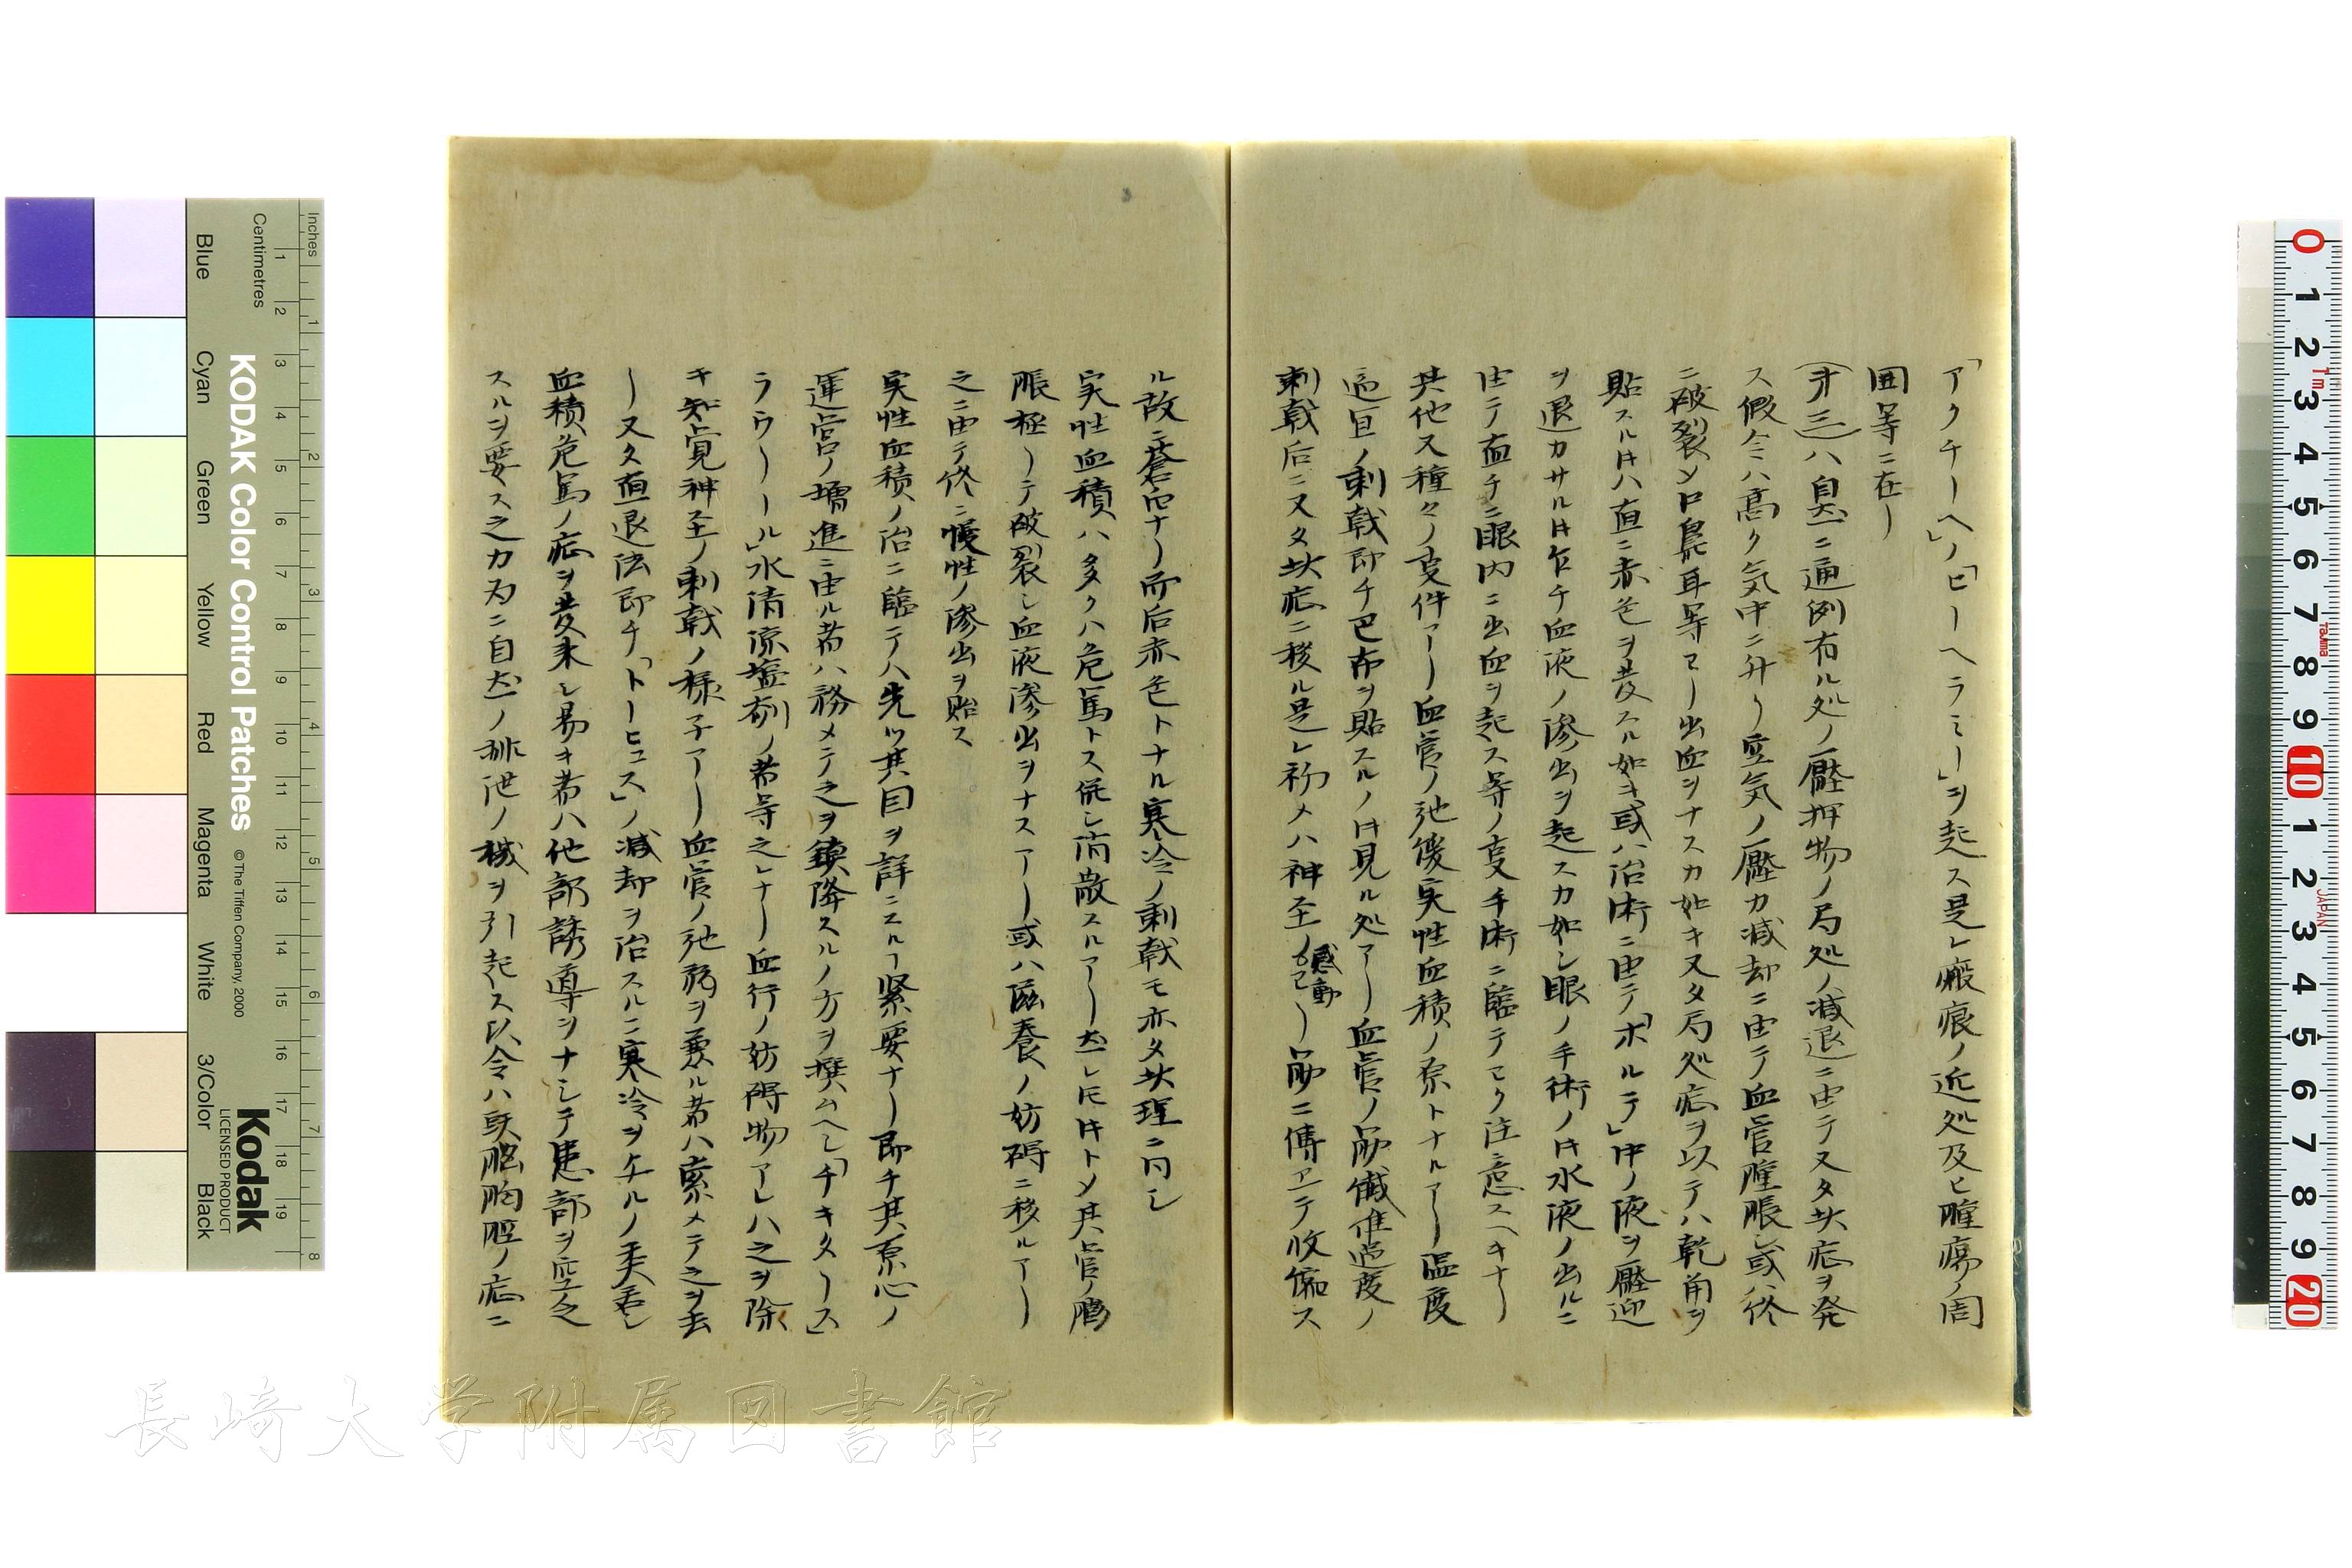 「アクチーヘ」ノ「ヒーヘラミー」ヲ起ス是レ瘢痕ノ近処及ヒ腫瘍ノ周
囲等ニ在ー
(才三)ハ自然ニ通例有ル処ノ壓押物ノ局処ノ減退ニ由テ又タ此症ヲ発
ス假令ハ高ク気中ニ升ー空気ノ壓力減却ニ由テ血管腫脹シ或ハ終
ニ破裂メ口鼻耳等ヨー出血ヲナスカ如キ又タ局処症ヲ以テハ乾角ヲ
貼スル片ハ直ニ赤色ヲ発スル如キ或ハ治術ニ由テ「ポルテ」中ノ液ヲ壓迎
ヲ退カサル片乍チ血液ノ滲出ヲ起スカ如シ眼ノ手術ノ片水液ノ出ルニ
由テ直チニ眼内ニ出血ヲ起ス等ノ変手術ニ臨テヨク注意スヘキナー
其他ス種々ノ変件アー血管ノ弛緩実性血積ノ原トナルアー温度
過亘ノ刺戟即チ巴布ヲ貼スルノ片見ル処アー血管ノ筋織維過度ノ
刺戟后ニ又タ此症ニ移ル是レ初メハ神圣ノ感動ヨー筋ニ傳ヱテ收縮ス
ル故ニ蒼白ナー而后赤色トナル寒冷ノ刺戟モ亦タ此理ニ同シ
実性血積ハ多クハ危篤トス併シ消散スルアー然レ𪜈片トメ其管ノ膨
脹極ーテ破裂シ血液滲出ヲナスアー或ハ滋養ノ妨碍ニ移ルアー
之ニ由テ終ニ慢性ノ滲出ヲ貽ス
実性血積ノ治ニ臨テハ先ツ其因ヲ詳ニスルヿ緊要ナー即チ其原心ノ
運営ノ増進ニ由ル者ハ務メテ之ヲ鎮降スルノ方ヲ撰ムヘシ「チキタース」
ラウーール」水清涼塩剤ノ者等之レナー血行ノ妨碍物アレハ之ヲ除
キ知覚神圣ノ刺戟ノ様子アー血管ノ弛弱ヲ兼ル者ハ索メテ之ヲ去
ー又タ直退法即チ「トーヒュス」ノ減却ヲ治スルニ寒冷ヲ用ルノ美若シ
血積危篤ノ症ヲ発来シ易キ者ハ他部誘導ヲナシテ患部ヲ空之
スルヲ要ス之カ為ニ自然ノ排泄ノ機ヲ引起ス以令ハ頭脳胸腔ノ症ニ
Inches
Centimetres
Blue
Cyan
Green
Yellow
Red
Magenta
White
3/Color
Black
KODAK Color Control Patches
©The Tiffen Company, 2000
Kodak
LICENSED PRODUCT
長崎大学附属図書館